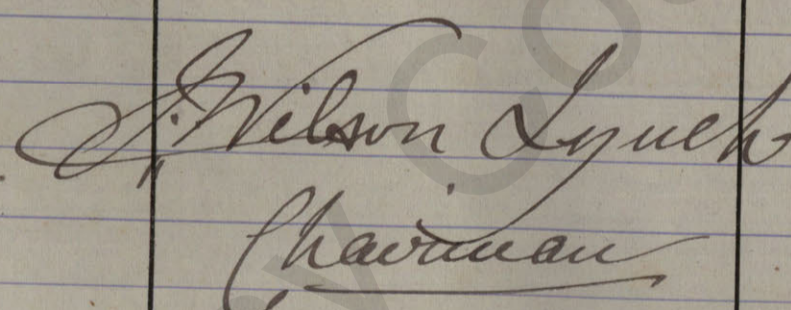 J. Wilson Lynch
Chairman